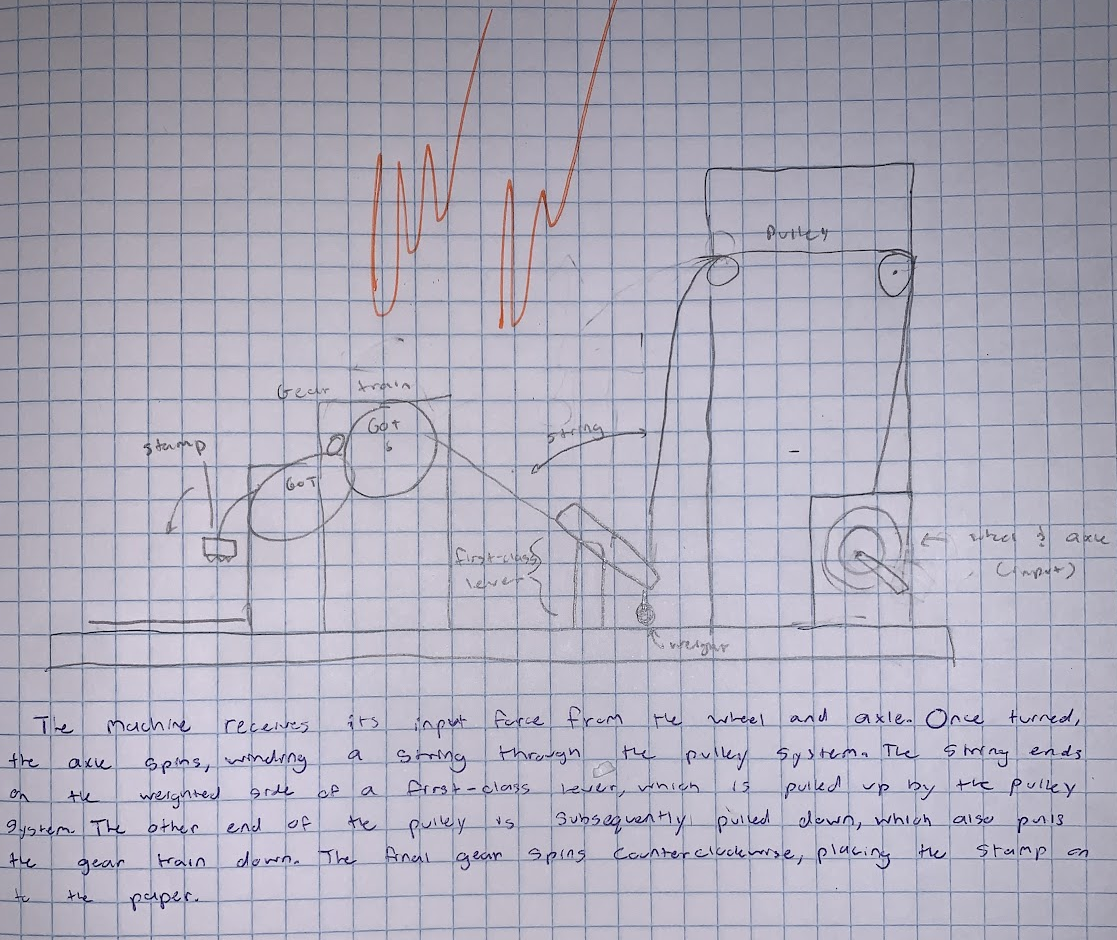 Pulley
Gear train
GOT
6
stamp
GOT
string
first-class
lever
wheel & axle
(input)
weight
The machine receives its input force from the wheel and axle. Once turned,
the axle spins, winding a string through the pulley system. The string ends
on the weighted side of a first-class lever, which is pulled up by the pulley
system. The other end of the pulley is subsequently pulled down, which also pulls
the gear train down. The final gear spins counterclockwise, placing the stamp on
to the paper.